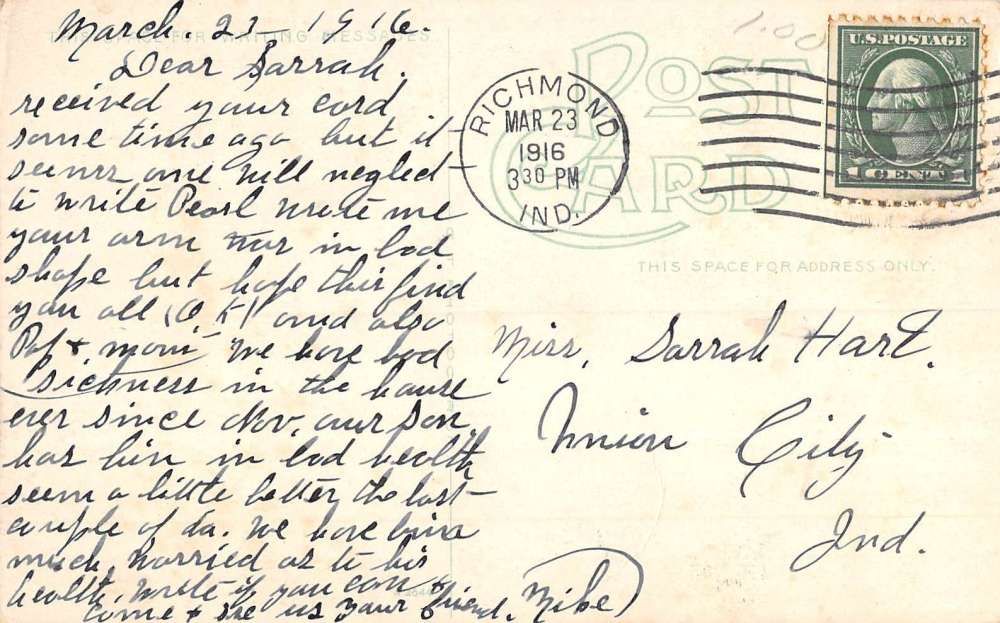 March. 22 - 1916.
THIS SPACE FOR WRITING MESSAGES
Dear Sarrah.
received your card
some time ago but it
seems one will neglect
to write Pearl wrote me
your arm was in bad
shape but hope this find
you all (O.K) and also
Pap & mom We have bad
sickness in the house
ever since Nov. our son
has bin in bad health
seem a little better the last
couple of da. We have bin
much worried as to his
health. Write if you can &
come & see us your friend. Mike
1.00
U.S. POSTAGE
1 CENT 1
RICHMOND
MAR 23
1916
3 30 PM
IND.
POST
CARD
THIS SPACE FOR ADDRESS ONLY.
Miss, Sarrah Hart.
Union City
Ind.